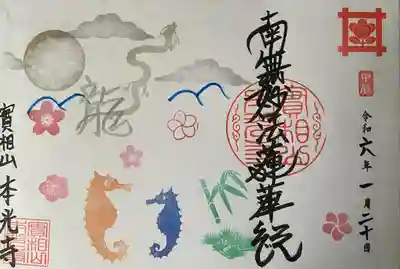 甲辰
令和六年一月二十日
南無妙法蓮華経
實相山
龍
實相山 本光寺
實相山